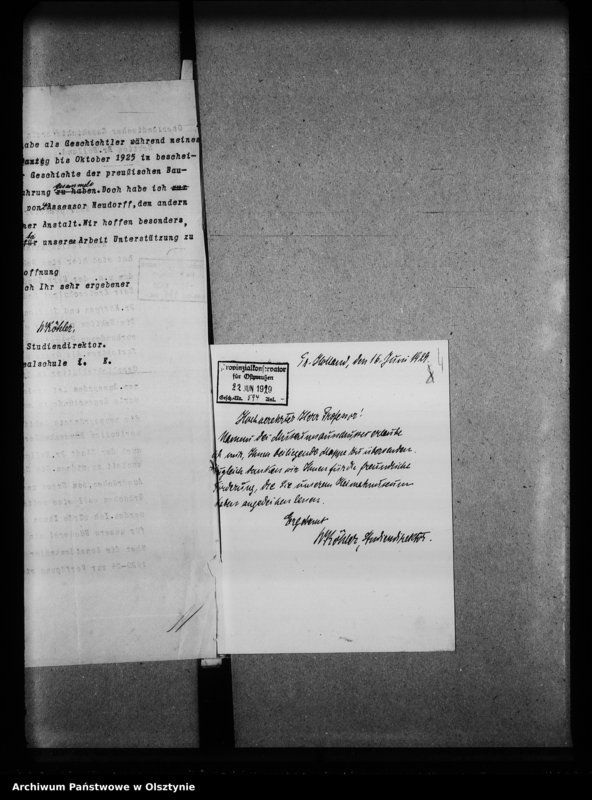 abe als Geschichtler während meines
bis Oktober 1925 in beschei-
Geschichte der preußischen Bau-
ahrung zu haben. Doch habe ich nur
von Assessor Neudorff, den andern
ner Anstalt. Wir hoffen besonders,
für unsere Arbeit Unterstützung zu
offnung
ch Ihr sehr ergebener
WKöhler,
Studiendirektor.
ealschule i. E.
Pr. Holland, den 16. Juni 1929.
4
Provinzialkonservator
für Ostpreußen
22 JUN 1929
Gesch.-Nr. 594 Anl. -
Hochverehrter Herr Professor!
Namens des Museumsausschusses erlaube
ich mir, Ihnen beiliegende Mappe zu übersenden.
Zugleich danken wir Ihnen für die freundliche
Förderung, die Sie unserem Heimatmuseum
haben angedeihen lassen.
Ergebenst
WKöhler, Studiendirektor.
Archiwum Państwowe w Olsztynie